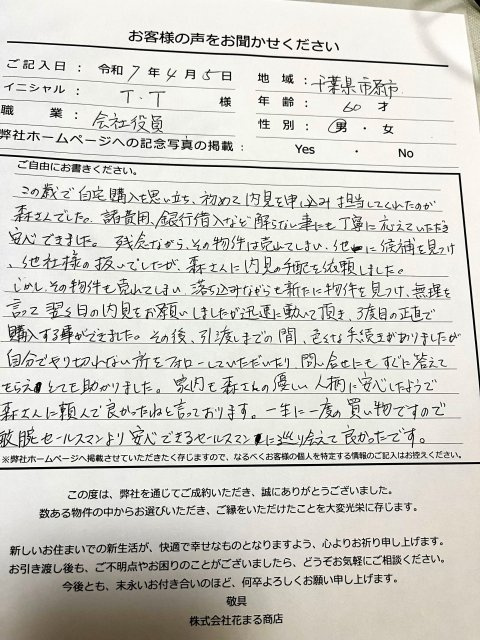 お客様の声をお聞かせください
ご記入日 ： 令和 7年 4月 5日
地 域 ： 千葉県市原市
イニシャル ： T.T 様
年 齢 ： 60 才
職 業 ： 会社役員
性 別 ： 男 ・ 女
弊社ホームページへの記念写真の掲載 ： Yes ・ No
ご自由にお書きください。
この歳で自宅購入を思い立ち、初めて内見を申し込み担当してくれたのが
森さんでした。諸費用、銀行借入など解らない事にも丁寧に応えていただき
安心できました。残念ながら、その物件は売れてしまい、他に候補を見つけ
他社様の扱いでしたが、森さんに内見の手配を依頼しました。
しかし、その物件も売れてしまい、落ち込みながらも新たに物件を見つけ、無理を
言って翌日の内見をお願いしましたが迅速に動いて頂き、3度目の正直で
購入する事ができました。その後、引渡しまでの間、色々な手続きがありましたが
自分でやり切れない所をフォローしていただいたり、問い合せにもすぐに答えて
もらえとても助かりました。家内も森さんの優しい人柄に安心したようで
森さんに頼んで良かったねと言っております。一生に一度の買い物ですので
敏腕セールスマンより安心できるセールスマンに巡り会えて良かったです。
※弊社ホームページへ掲載させていただきたく存じますので、なるべくお客様の個人を特定する情報のご記入はお控えください。
この度は、弊社を通じてご成約いただき、誠にありがとうございました。
数ある物件の中からお選びいただき、ご縁をいただけたことを大変光栄に存じます。
新しいお住まいでの新生活が、快適で幸せなものとなりますよう、心よりお祈り申し上げます。
お引き渡し後も、ご不明点やお困りのことがございましたら、どうぞお気軽にご相談ください。
今後とも、末永いお付き合いのほど、何卒よろしくお願い申し上げます。
敬具
株式会社花まる商店